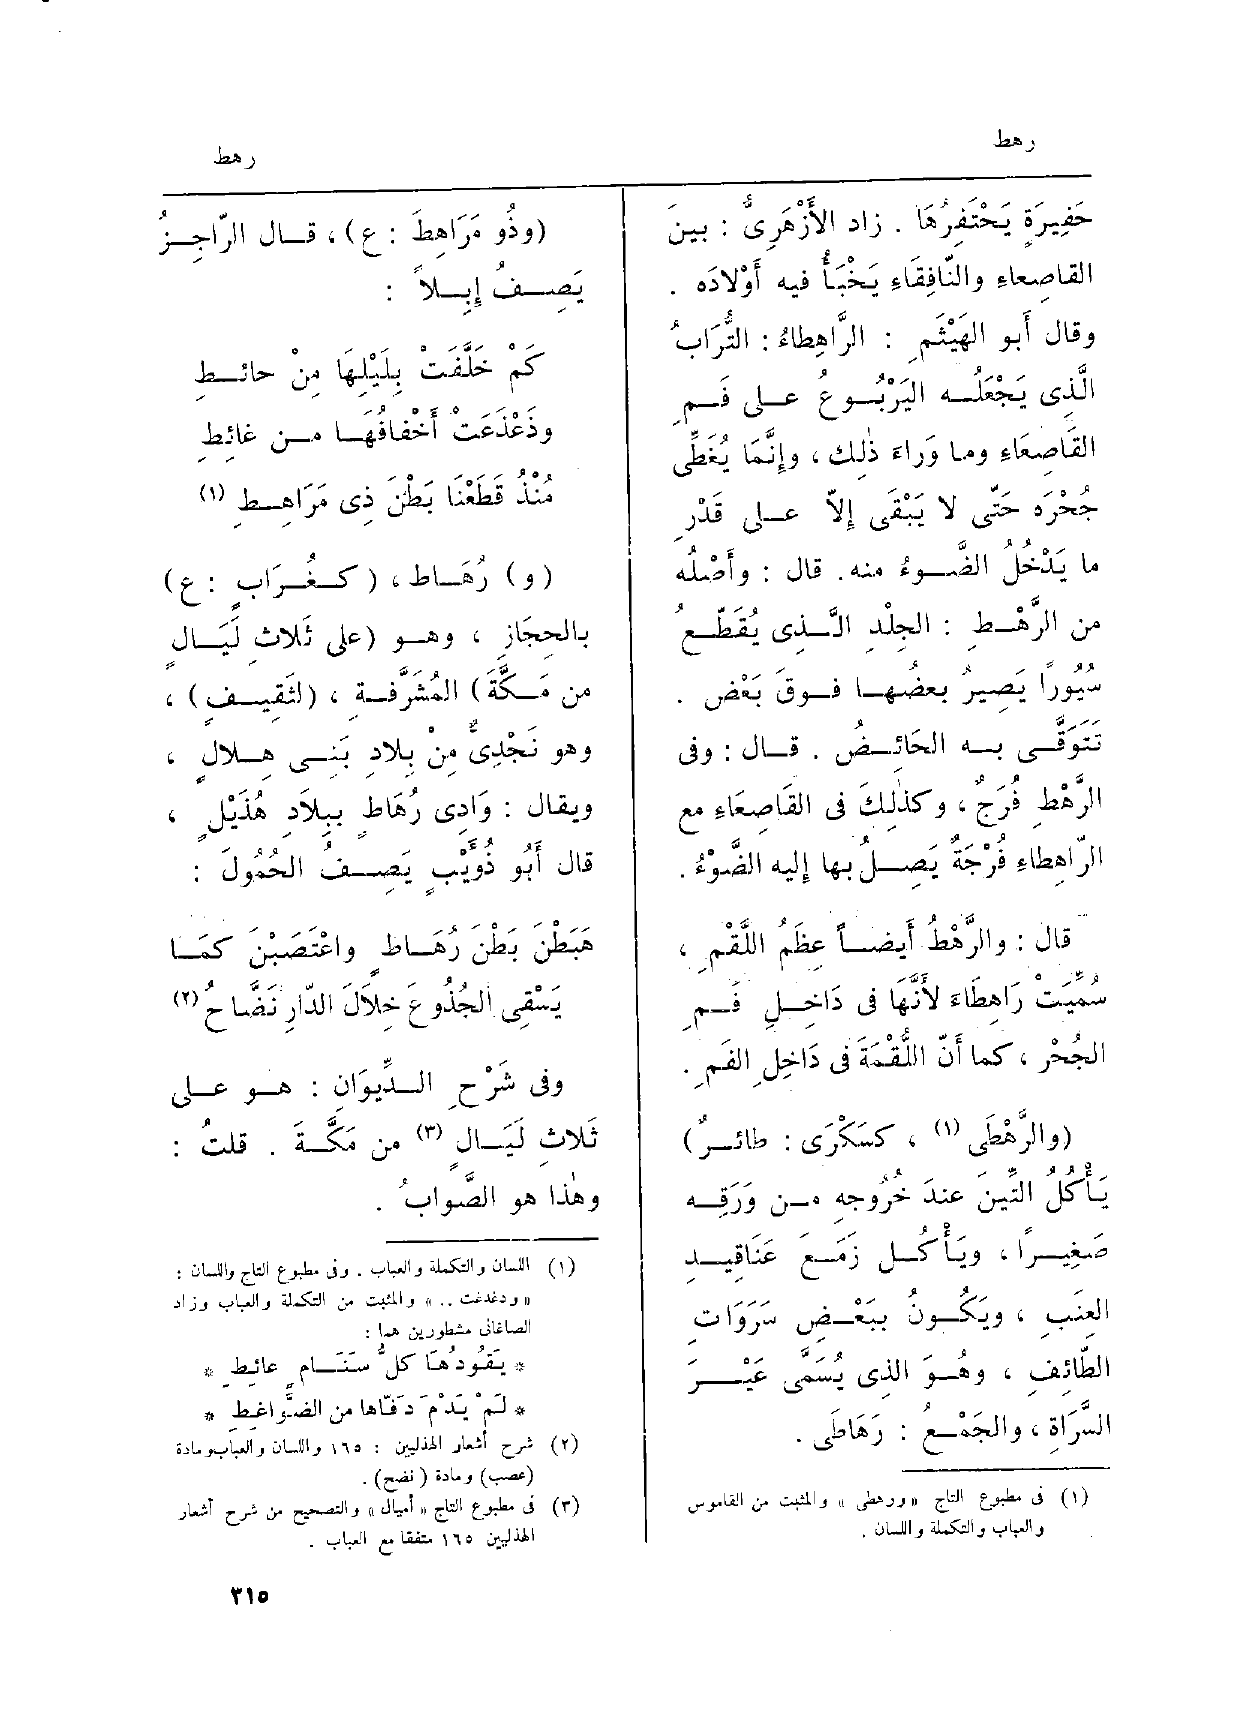 رهط
رهط
حَفِيرَةٍ يَحْتَفِرُهَا . زاد الأَزْهَرِىُّ : بينَ
القاصِعاءِ والنّافِقَاءِ يَخْبَأُ فيه أَوْلادَه .
وقال أَبو الهَيْثَمِ : الرَّاهِطاءُ : التُّرَابُ
الَّذِى يَجْعَلُه اليَرْبُوعُ على فَمِ
القَاصِعَاءِ وما وَراءَ ذٰلِك ، وإِنَّمَا يُغَطِّى
جُحْرَه حَتَّى لا يَبْقَى إِلاّ على قَدْرِ
ما يَدْخُلُ الضَّوءُ منه. قال : وأَصْلُه
من الرَّهْطِ : الجِلْدِ الَّذِى يُقَطَّعُ
سُيُوراً يَصِيرُ بعضُها فوقَ بَعْضٍ .
تَتَوَقَّى به الحَائِضُ . قال : وفى
الرَّهْطِ فُرَجٌ ، وكذٰلِكَ فى القَاصِعَاءِ مع
الرّاهِطاءِ فُرْجَةٌ يَصِلُ بها إِليه الضَّوْءُ .
قال : والرَّهْطُ أَيضاً عِظَمُ اللَّقْمِ ،
سُمِّيَتْ رَاهِطَاءَ لأَنَّهَا فى دَاخِلِ فَمِ
الجُحْرِ ، كما أَنّ اللُّقْمَةَ فى دَاخِلِ الفَمِ .
(والرَّهْطَى (١) ، كسَكْرَى : طائرٌ)
يَأْكُلُ التِّينَ عندَ خُرُوجِه من وَرَقِه
صَغِيراً ، ويَأْكُل زَمَعَ عَنَاقِيدِ
العِنَبِ ، ويَكُونُ بِبَعْضِ سَرَوَاتِ
الطّائِفِ ، وهُوَ الذى يُسَمَّى عَيْرَ
السَّرَاةِ ، والجَمْعُ : رَهَاطَى .
(١) فى مطبوع التاج «ورهطى» والمثبت من القاموس
والعباب والتكملة واللسان .
(وذُو مَرَاهِطَ : ع) ، قال الرّاجِزُ
يَصِفُ إِبِلاً :
كَمْ خَلَّفَتْ بِلَيْلِها مِنْ حائطِ
وذَعْذَعَتْ أَخْفافُها من غائطِ
مُنْذُ قَطَعْنَا بَطْنَ ذِى مَرَاهِطِ (١)
(و) رُهَاط ، (كغُرَابٍ : ع)
بالحِجَازِ ، وهو (على ثَلاثِ لَيَالٍ
من مَكَّةَ) المُشَرَّفة ، (لثَقِيفٍ) ،
وهو نَجْدِىٌّ مِنْ بِلادِ بَنِى هِلالٍ ،
ويقال : وَادِى رُهَاطٍ بِبِلادِ هُذَيْلٍ ،
قال أَبُو ذُؤَيْبٍ يَصِفُ الحُمُولَ :
هَبَطْنَ بَطْنَ رُهَاطٍ واعْتَصَبْنَ كمَا
يَسْقِى الجُذُوعَ خِلالَ الدّارِ نَضَّاحُ (٢)
وفى شَرْحِ الدِّيوَانِ : هو على
ثَلاثِ لَيَالٍ (٣) من مَكَّةَ . قلتُ :
وهٰذا هو الصَّوابُ .
(١) اللسان والتكملة والعباب . وفى مطبوع التاج واللسان :
«ودغدغت ..» والمثبت من التكملة والعباب وزاد
الصاغانى مشطورين هما :
* يَقُودُهَا كلُّ سَنَامٍ عائطِ *
* لَمْ يَدْمَ دَفَّاها من الضَّواغِطِ *
(٢) شرح أشعار الهذليين : ١٦٥ واللسان والعباب ومادة
(عصب) ومادة (نضح) .
(٣) فى مطبوع التاج «أميال» والتصحيح من شرح أشعار
الهذليين ١٦٥ متفقا مع العباب .
٣١٥